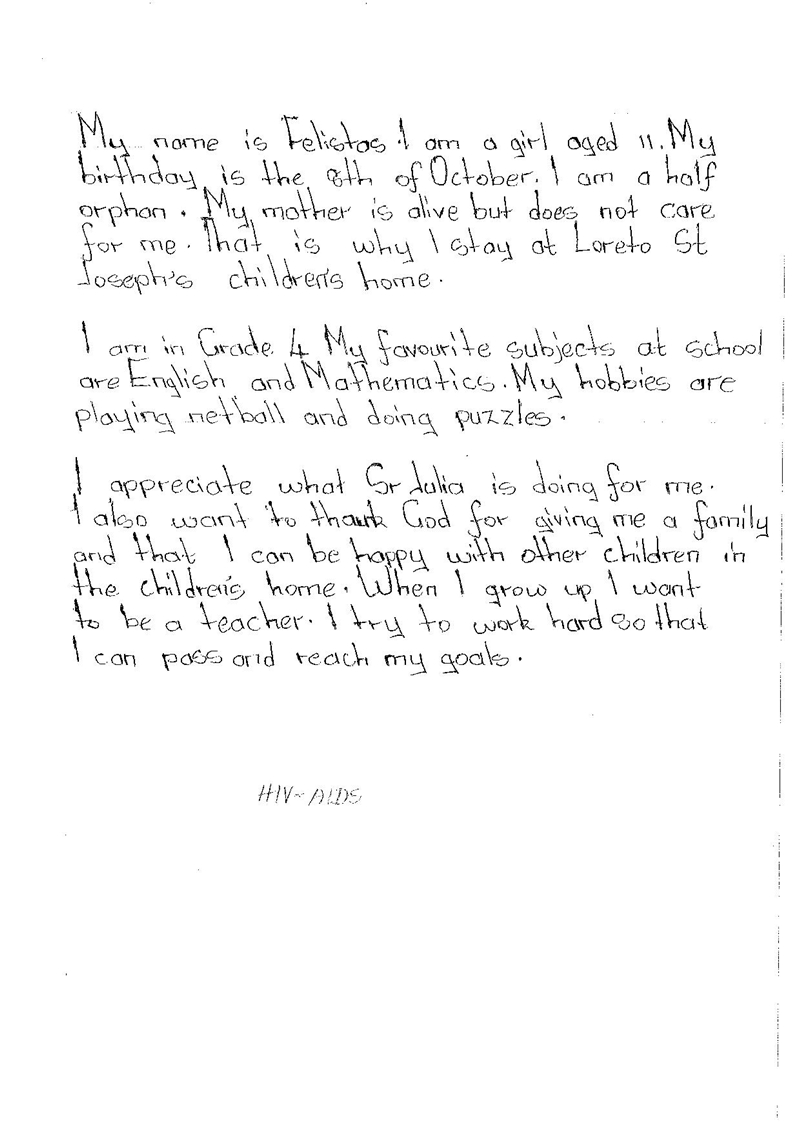 My name is Felistas. I am a girl aged 11. My
birthday is the 8th of October. I am a half
orphan. My mother is alive but does not care
for me. That is why I stay at Loreto St
Joseph's children's home.
I am in Grade 4 My favourite subjects at school
are English and Mathematics. My hobbies are
playing netball and doing puzzles.
I appreciate what Sr Julia is doing for me.
I also want to thank God for giving me a family
and that I can be happy with other children in
the children's home. When I grow up I want
to be a teacher. I try to work hard so that
I can pass and reach my goals.
HIV-AIDS